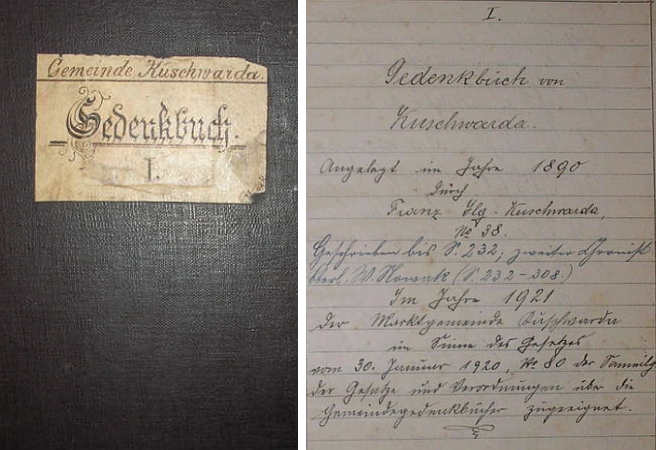 Gemeinde Kuschwarda.
Gedenkbuch.
I.
I.
Gedenkbuch von
Kuschwarda.
Angelegt im Jahre 1890
durch
Franz Ilg - Kuschwarda,
No 38.
Geschrieben bis S. 232; zweiter Chronist
Oberl. W. Nowak (S. 232-308.)
Im Jahre 1921
der Marktgemeinde Kuschwarda
im Sinne des Gesetzes
vom 30. Januar 1920, No 80 der Sammlg.
der Gesetze und Verordnungen über die
Gemeindegedenkbücher zugeeignet.